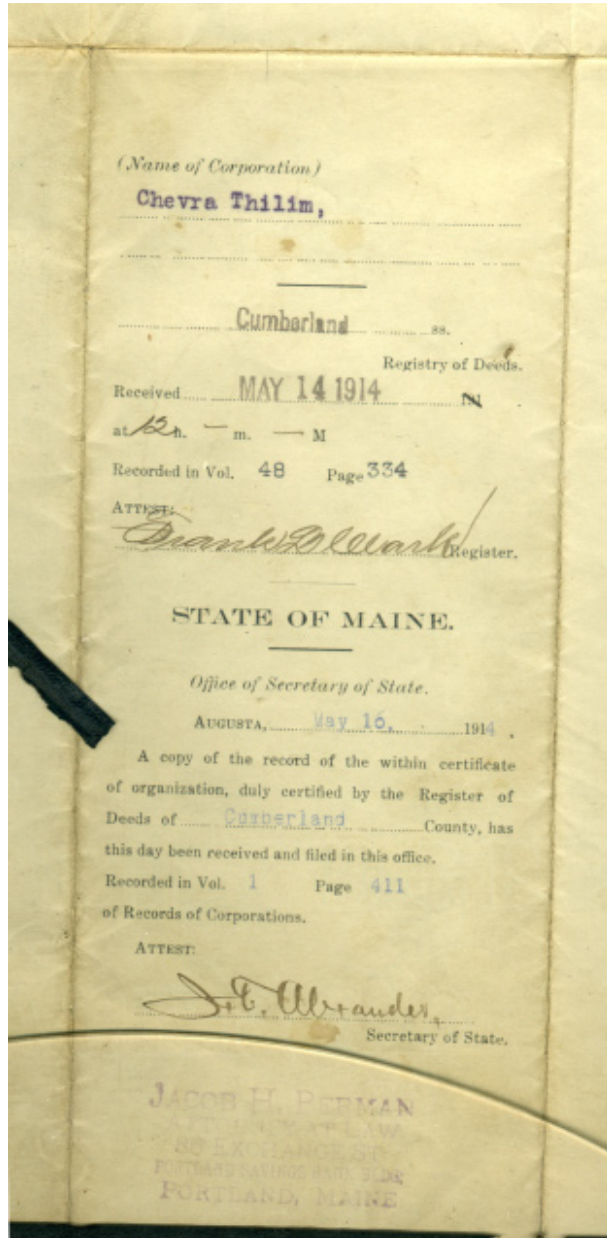 (Name of Corporation)
Chevra Thilim,
Cumberland ss.
Registry of Deeds.
Received MAY 14 1914
at 12 h. — m. — M
Recorded in Vol. 48 Page 334
ATTEST:
Frank L Clark Register.
STATE OF MAINE.
Office of Secretary of State.
AUGUSTA, May 16, 1914.
A copy of the record of the within certificate
of organization, duly certified by the Register of
Deeds of Cumberland County, has
this day been received and filed in this office.
Recorded in Vol. 1 Page 411
of Records of Corporations.
ATTEST:
Secretary of State.
JACOB H. BERMAN
ATTORNEY AT LAW
85 EXCHANGE ST
PORTLAND SAVINGS BANK BLDG
PORTLAND, MAINE